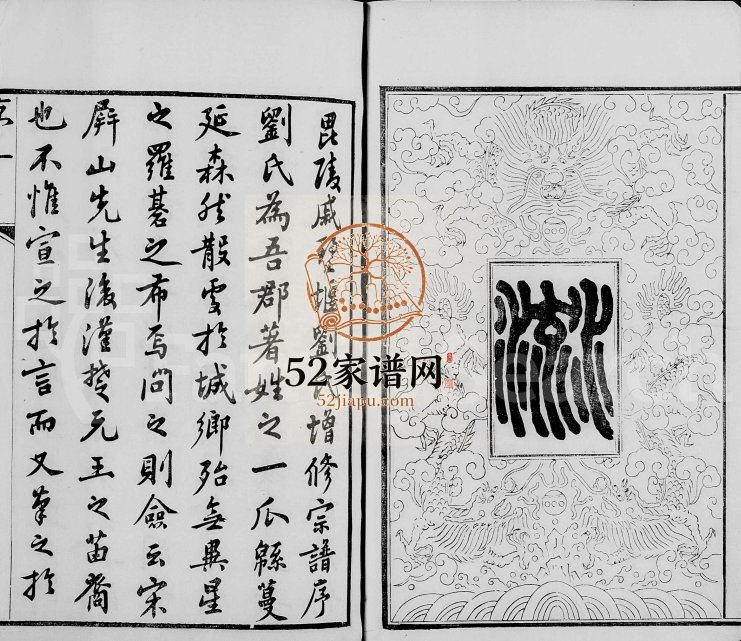 流
毘陵戚墅堰劉氏增修宗譜序
劉氏為吾郡著姓之一瓜緜蔓
延森然散處於城鄉殆無異星
之羅碁之布焉問之則僉云宋
屏山先生後漢楚元王之苗裔
也不惟宣之於言而又筆之於
52家谱网
52jiapu.com